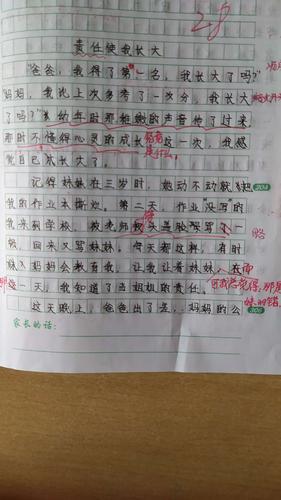 28
责任使我长大
"爸爸,我得了第一名,我长大了吗?"
"妈妈,我比上次多考了一次分,我长大
了吗?"幼年时那稚嫩的声音传了过来,
那时不懂得心灵的成长 这一次,我感
是什么。
觉自己长大了。
记得妹妹在三岁时,她动不动就把
204
我的作业本撕烂。第二天,作业"没写"的
我来到学校,被老师
回来又写 每天都这样,有时
略
妈妈会教育我,让我让着妹妹。在
一天,我知道了当姐姐的责任。
可我总觉得,那是
妹的错。
这天晚上,爸爸出了差,妈妈的公
205
家长的话: